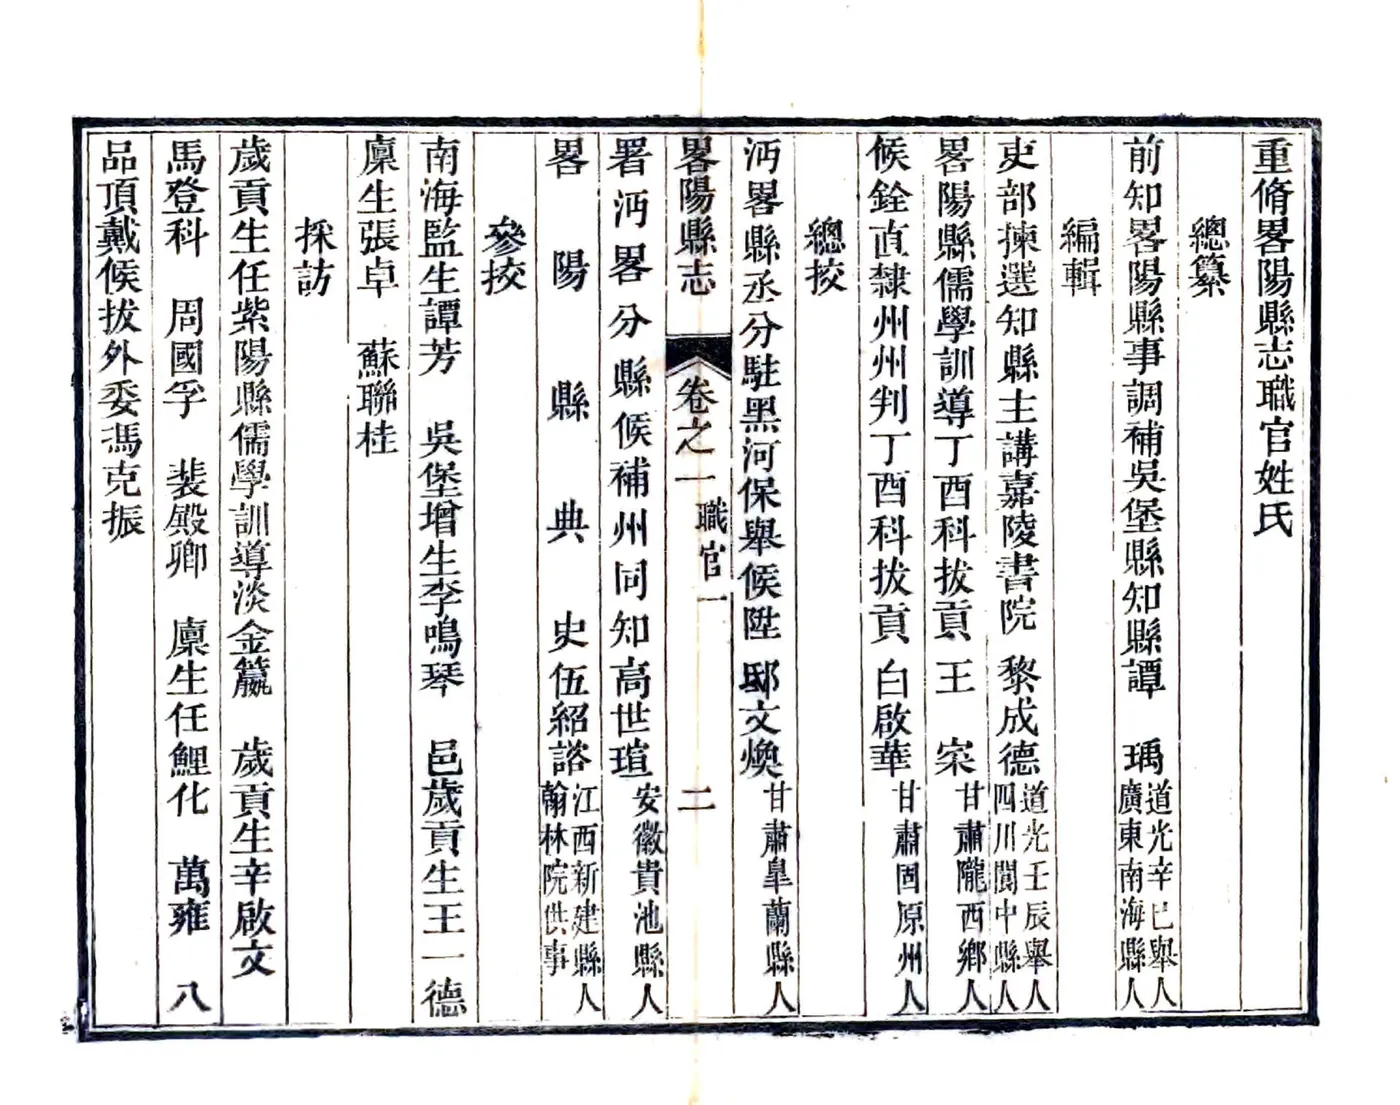 重脩畧陽縣志職官姓氏
總纂
前知畧陽縣事調補吳堡縣知縣譚　瑀道光辛巳舉人廣東南海縣人
編輯
吏部揀選知縣主講嘉陵書院　黎成德道光壬辰舉人四川閬中縣人
畧陽縣儒學訓導丁酉科拔貢　王　寀甘肅隴西鄉人
候銓直隸州州判丁酉科拔貢　白啟華甘肅固原州人
總挍
沔畧縣丞分駐黑河保舉候陞　邸文煥甘肅臯蘭縣人
畧陽縣志　卷之一　職官一　二
署沔畧分縣候補州同知高世瑄安徽貴池縣人
畧陽縣典史伍紹諮江西新建縣人翰林院供事
參挍
南海監生譚芳　吳堡增生李鳴琴　邑歲貢生王一德
廩生張卓　蘇聯桂
採訪
歲貢生任紫陽縣儒學訓導淡金籯　歲貢生辛啟文
馬登科　周國孚　裴殿卿　廩生任鯉化　萬雍　八
品頂戴候拔外委馮克振